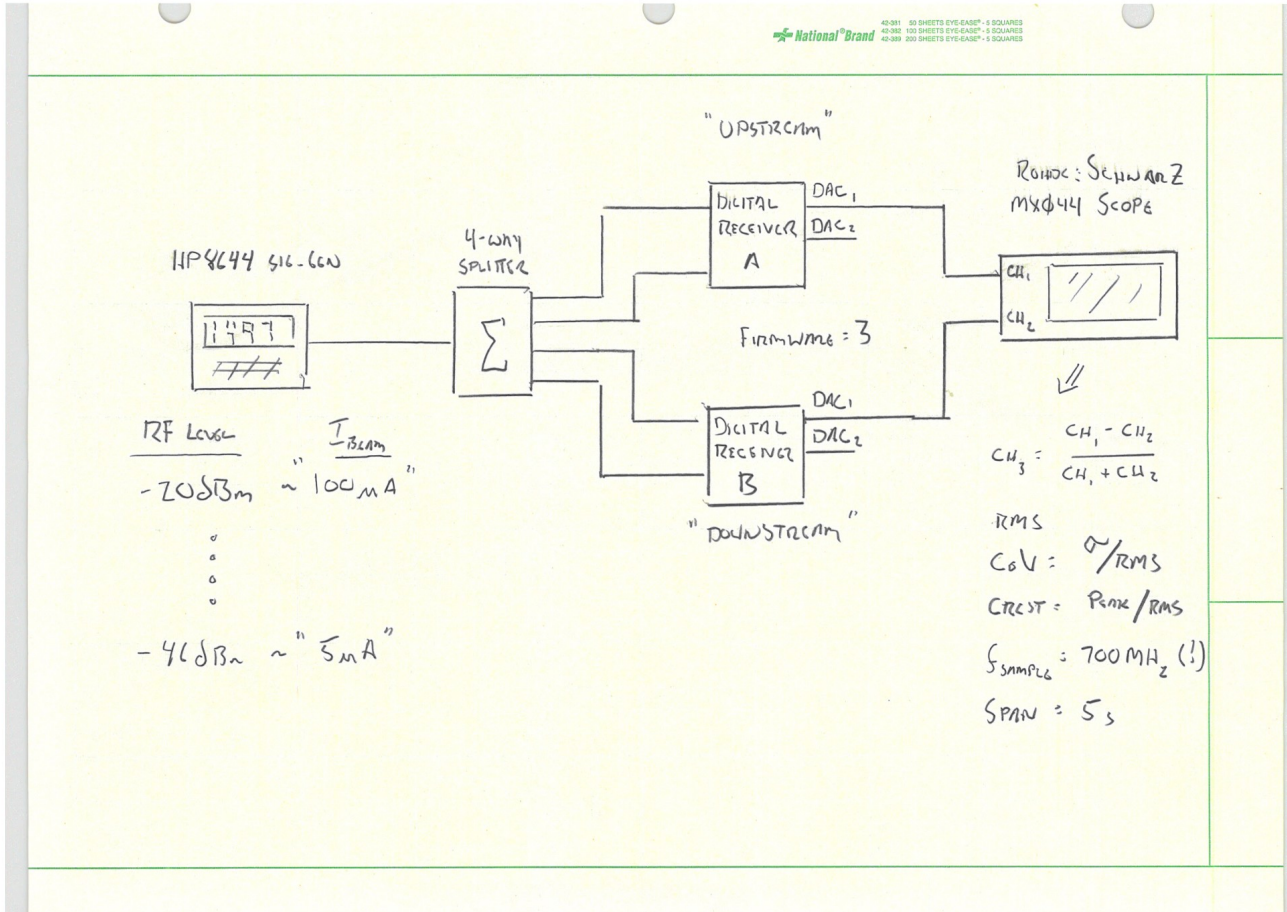 National® Brand
42-381 50 SHEETS EYE-EASE® - 5 SQUARES
42-382 100 SHEETS EYE-EASE® - 5 SQUARES
42-389 200 SHEETS EYE-EASE® - 5 SQUARES
"UPSTREAM"
ROHDE : SCHWARZ
MXØ44 SCOPE
HP8644 SIG-GEN
4-WAY
SPLITTER
Σ
DIGITAL
RECEIVER
A
DAC1
DAC2
CH1
CH2
FIRMWARE = 3
DIGITAL
RECEIVER
B
DAC1
DAC2
"DOWNSTREAM"
RF LEVEL
IBEAM
-20dBm ~ "100μA"
-46dBm ~ "5μA"
CH3 = CH1 - CH2 / CH1 + CH2
RMS
CoV = σ/RMS
CREST = PEAK/RMS
fSAMPLE = 700MHz (!)
SPAN = 5s